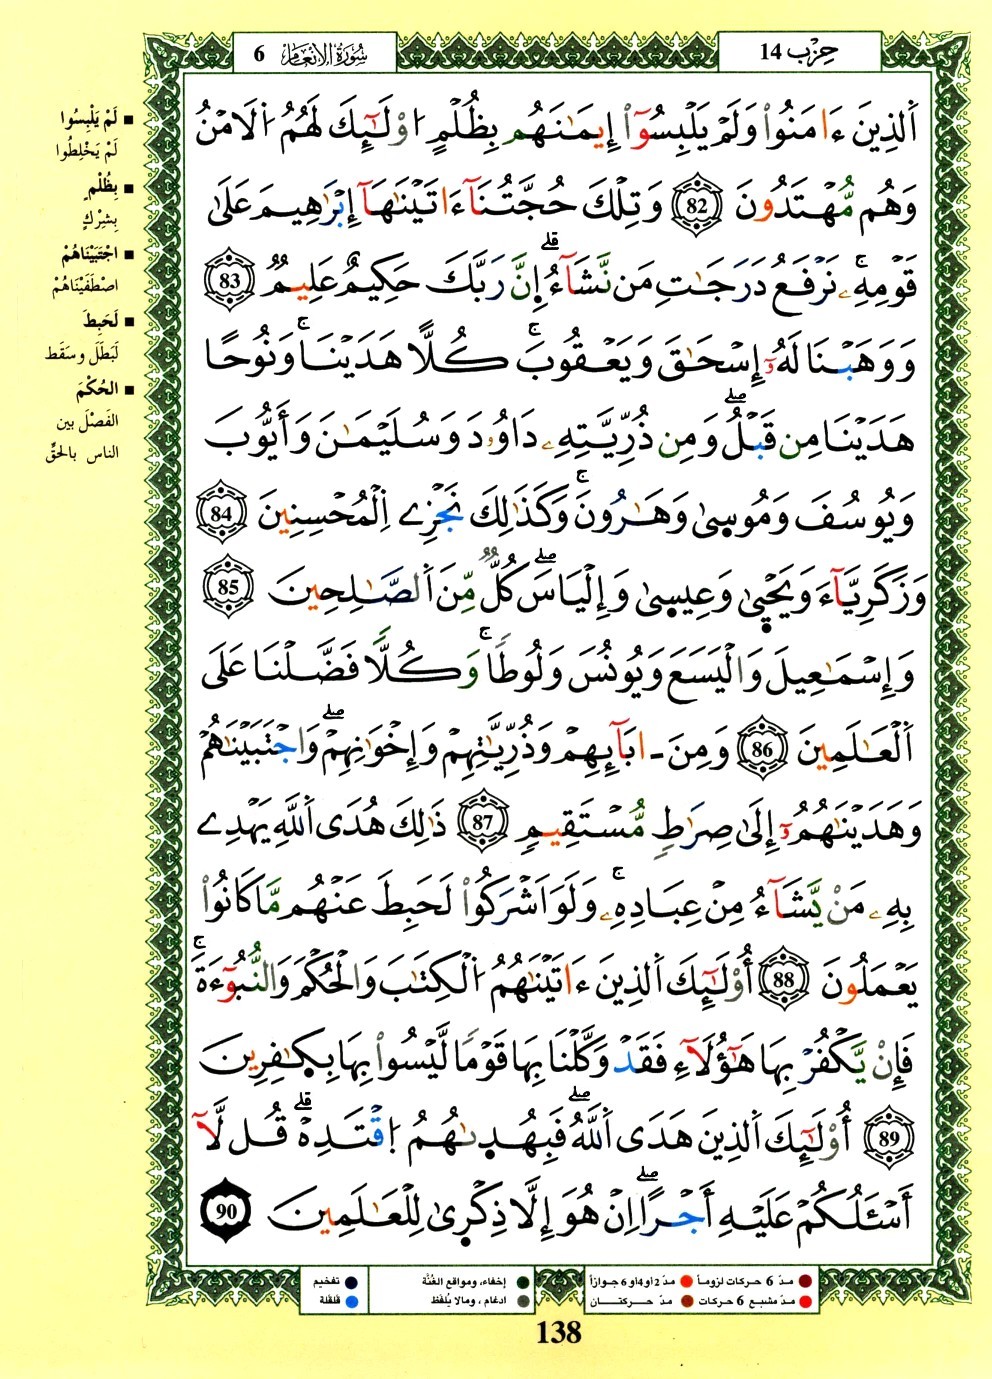 سُورَةُ الأَنْعَامِ 6
حِزْب 14
اَ۬لذِينَ ءَامَنُواْ وَلَمْ يَلْبِسُوٓاْ إِيمَٰنَهُم بِظُلْمٍ ا۟وْلَٰٓئِكَ لَهُمُ اُ۬لَامْنُ
وَهُم مُّهْتَدُونَ 82 وَتِلْكَ حُجَّتُنَآ ءَاتَيْنَٰهَآ إِبْرَٰهِيمَ عَلَىٰ
قَوْمِهِۦۚ نَرْفَعُ دَرَجَٰتِ مَن نَّشَآءُۗ اِنَّ رَبَّكَ حَكِيمٌ عَلِيمٞ 83
وَوَهَبْنَا لَهُۥٓ إِسْحَٰقَ وَيَعْقُوبَۚ كُلّاً هَدَيْنَاۚ وَنُوحًا
هَدَيْنَا مِن قَبْلُۖ وَمِن ذُرِّيَّتِهِۦ دَاوُۥدَ وَسُلَيْمَٰنَ وَأَيُّوبَ
وَيُوسُفَ وَمُوس۪ىٰ وَهَٰرُونَۚ وَكَذَٰلِكَ نَجْزِے اِ۬لْمُحْسِنِينَ 84
وَزَكَرِيَّآءَ وَيَحْي۪ىٰ وَعِيس۪ىٰ وَإِلْيَاسَۖ كُلّٞ مِّنَ اَ۬لصَّٰلِحِينَ 85
وَإِسْمَٰعِيلَ وَالْيَسَعَ وَيُونُسَ وَلُوطاٗۚ وَكُلّاٗ فَضَّلْنَا عَلَى
اَ۬لْعَٰلَمِينَ 86 وَمِنَ ـ ابَآئِهِمْ وَذُرِّيَّٰتِهِمْ وَإِخْوَٰنِهِمْۖ وَاجْتَبَيْنَٰهُمْ
وَهَدَيْنَٰهُمُۥٓ إِلَىٰ صِرَٰطٖ مُّسْتَقِيمٖ 87 ذَٰلِكَ هُدَى اَ۬للَّهِ يَهْدِے
بِهِۦ مَنْ يَّشَآءُ مِنْ عِبَادِهِۦۚ وَلَوَ اَشْرَكُواْ لَحَبِطَ عَنْهُم مَّا كَانُواْ
يَعْمَلُونَ 88 أُوْلَٰٓئِكَ اَ۬لذِينَ ءَاتَيْنَٰهُمُ اُ۬لْكِتَٰبَ وَالْحُكْمَ وَالنُّبُوٓءَةَۚ
فَإِنْ يَّكْفُرْ بِهَا هَٰٓؤُلَآءِ فَقَدْ وَكَّلْنَا بِهَا قَوْماٗ لَّيْسُواْ بِهَا بِكَٰفِرِينَ
89 أُوْلَٰٓئِكَ اَ۬لذِينَ هَدَى اَ۬للَّهُۖ فَبِهُد۪ىٰهُمُ اُ۪قْتَدِهْۗ قُل لَّآ
أَسْـَٔلُكُمْ عَلَيْهِ أَجْراًۖ اِنْ هُوَ إِلَّا ذِكْر۪ىٰ لِلْعَٰلَمِينَ 90
■ لَمْ يَلْبِسُوا
لَمْ يَخْلِطُوا
■ بِظُلْمٍ
بِشِرْكٍ
■ اجْتَبَيْنَاهُمْ
اصْطَفَيْنَاهُمْ
■ لَحَبِطَ
لَبَطَلَ وسَقَط
■ الحُكْمَ
الفَصْلَ بين
الناس بالحَقِّ
● مدّ 6 حركات لزوماً ● مدّ 2 أو 4 أو 6 جوازاً
● مدّ مشبع 6 حركات ● مدّ حركتان
● إخفاء، ومواقع الغُنَّة
● ادغام ، ومالا يُلفَظ
● تفخيم
● قلقلة
138